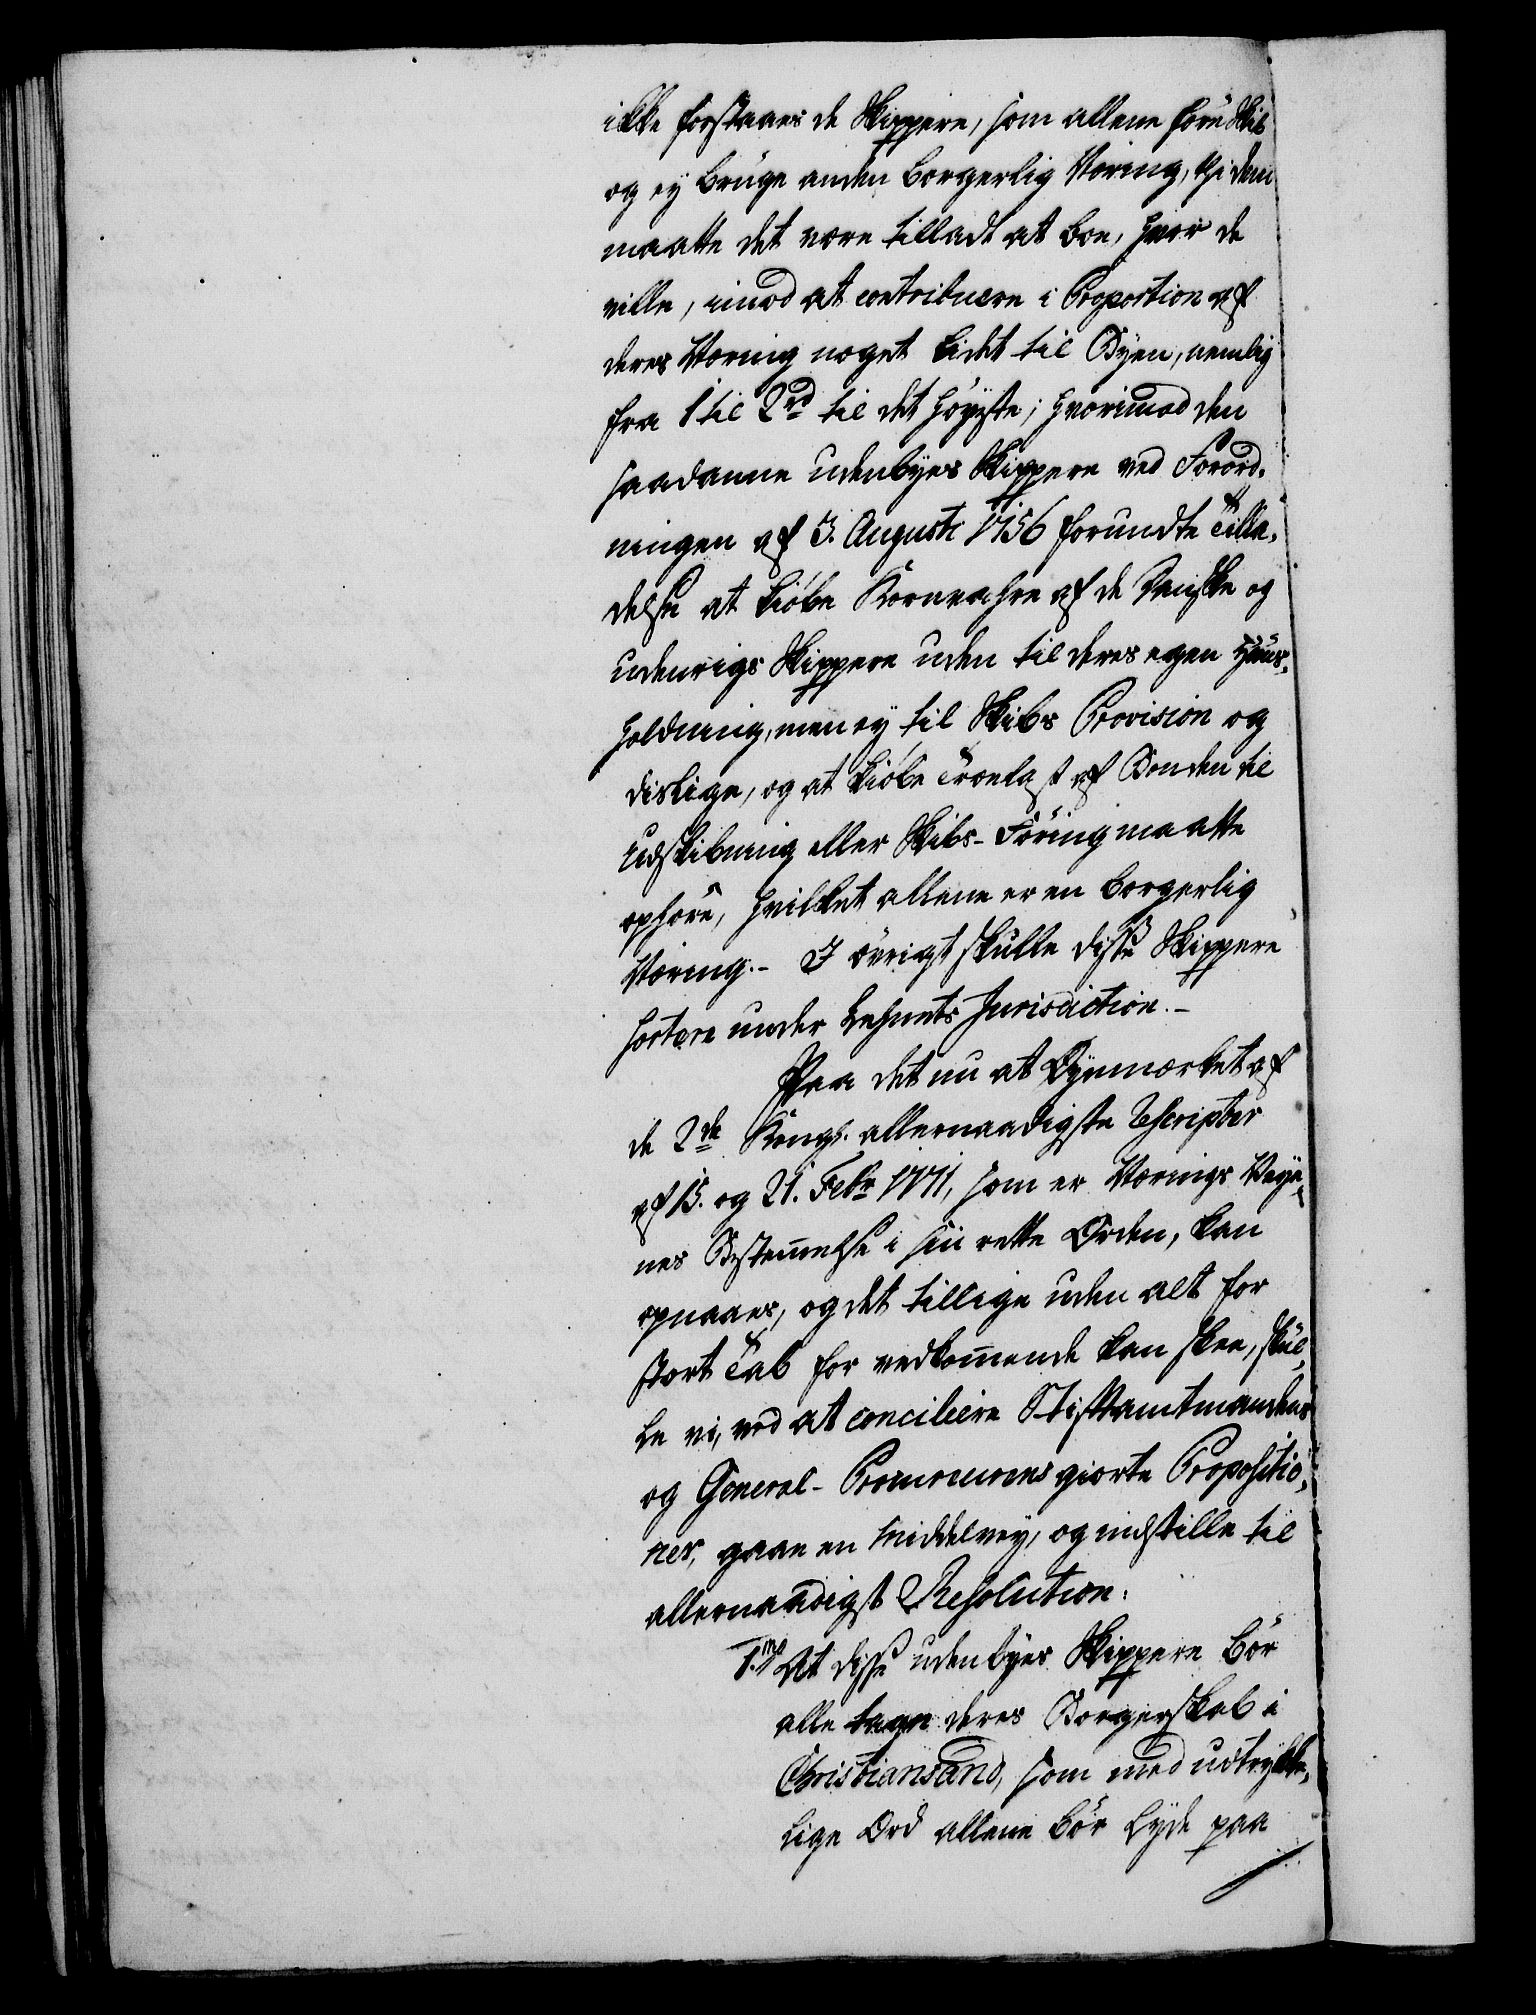 ikke forstaaes de Skippere, som allene føre Skib
og ey bruge anden borgerlig Næring, thi dem
maatte det være tilladt at boe, hvor de
ville, imod at contribuere i Proportion af
deres Næring noget lidet til Byen, nemlig
fra 1 til 2 rd til det høyeste; hvorimod den
saadanne udenbyes Skippere ved Forord-
ningen af 3. Augusti 1756 forundte Tilla-
delse at kiøbe Kornvahre af de Danske og
udenrigs Skippere uden til deres egen Huus-
holdning, men ey til Skibs Provision og
dislige, og at kiøbe Trælast af Bonden til
Udskibning eller Skibs-Føring maatte
ophøre, hvilket allene er en borgerlig
Næring. - I øvrigt skulle disse Skippere
sortere under Lehnets Jurisdiction. -
Paa det nu at Øyemærket af
de 2de Kongl. allernaadigste Rescripter
af 15. og 21. Febr 1771, som er Nærings Veye-
nes Bestemelse i sin rette Orden, kan
opnaaes, og det tillige uden alt for
stort Tab for vedkomende kan skee, skul-
le vi, ved at conciliere Stiftamtmandens
og General-Procureurens giorte Propositio-
ner, gaae en Middelvey, og indstille til
allernaadigst Resolution.
1.mo At disse udenbyes Skippere bør
alle tage deres Borgerskab i
Christiansand, som med udtrykke-
lige Ord allene bør lyde paa